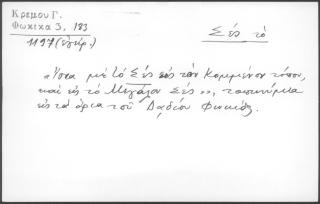 Κρεμου Γ.
Φωκικα 3, 183
1197 (έγγρ.)
Σές τὸ
«Ίσα μὲ τὸ Σές εἰς τὸν Κομμένον τόπον,
καὶ εἰς τὸ Μεγάλον Σές», τοπωνύμια
εἰς τὰ ὅρια τοῦ Δαδίου Φωκίδος.